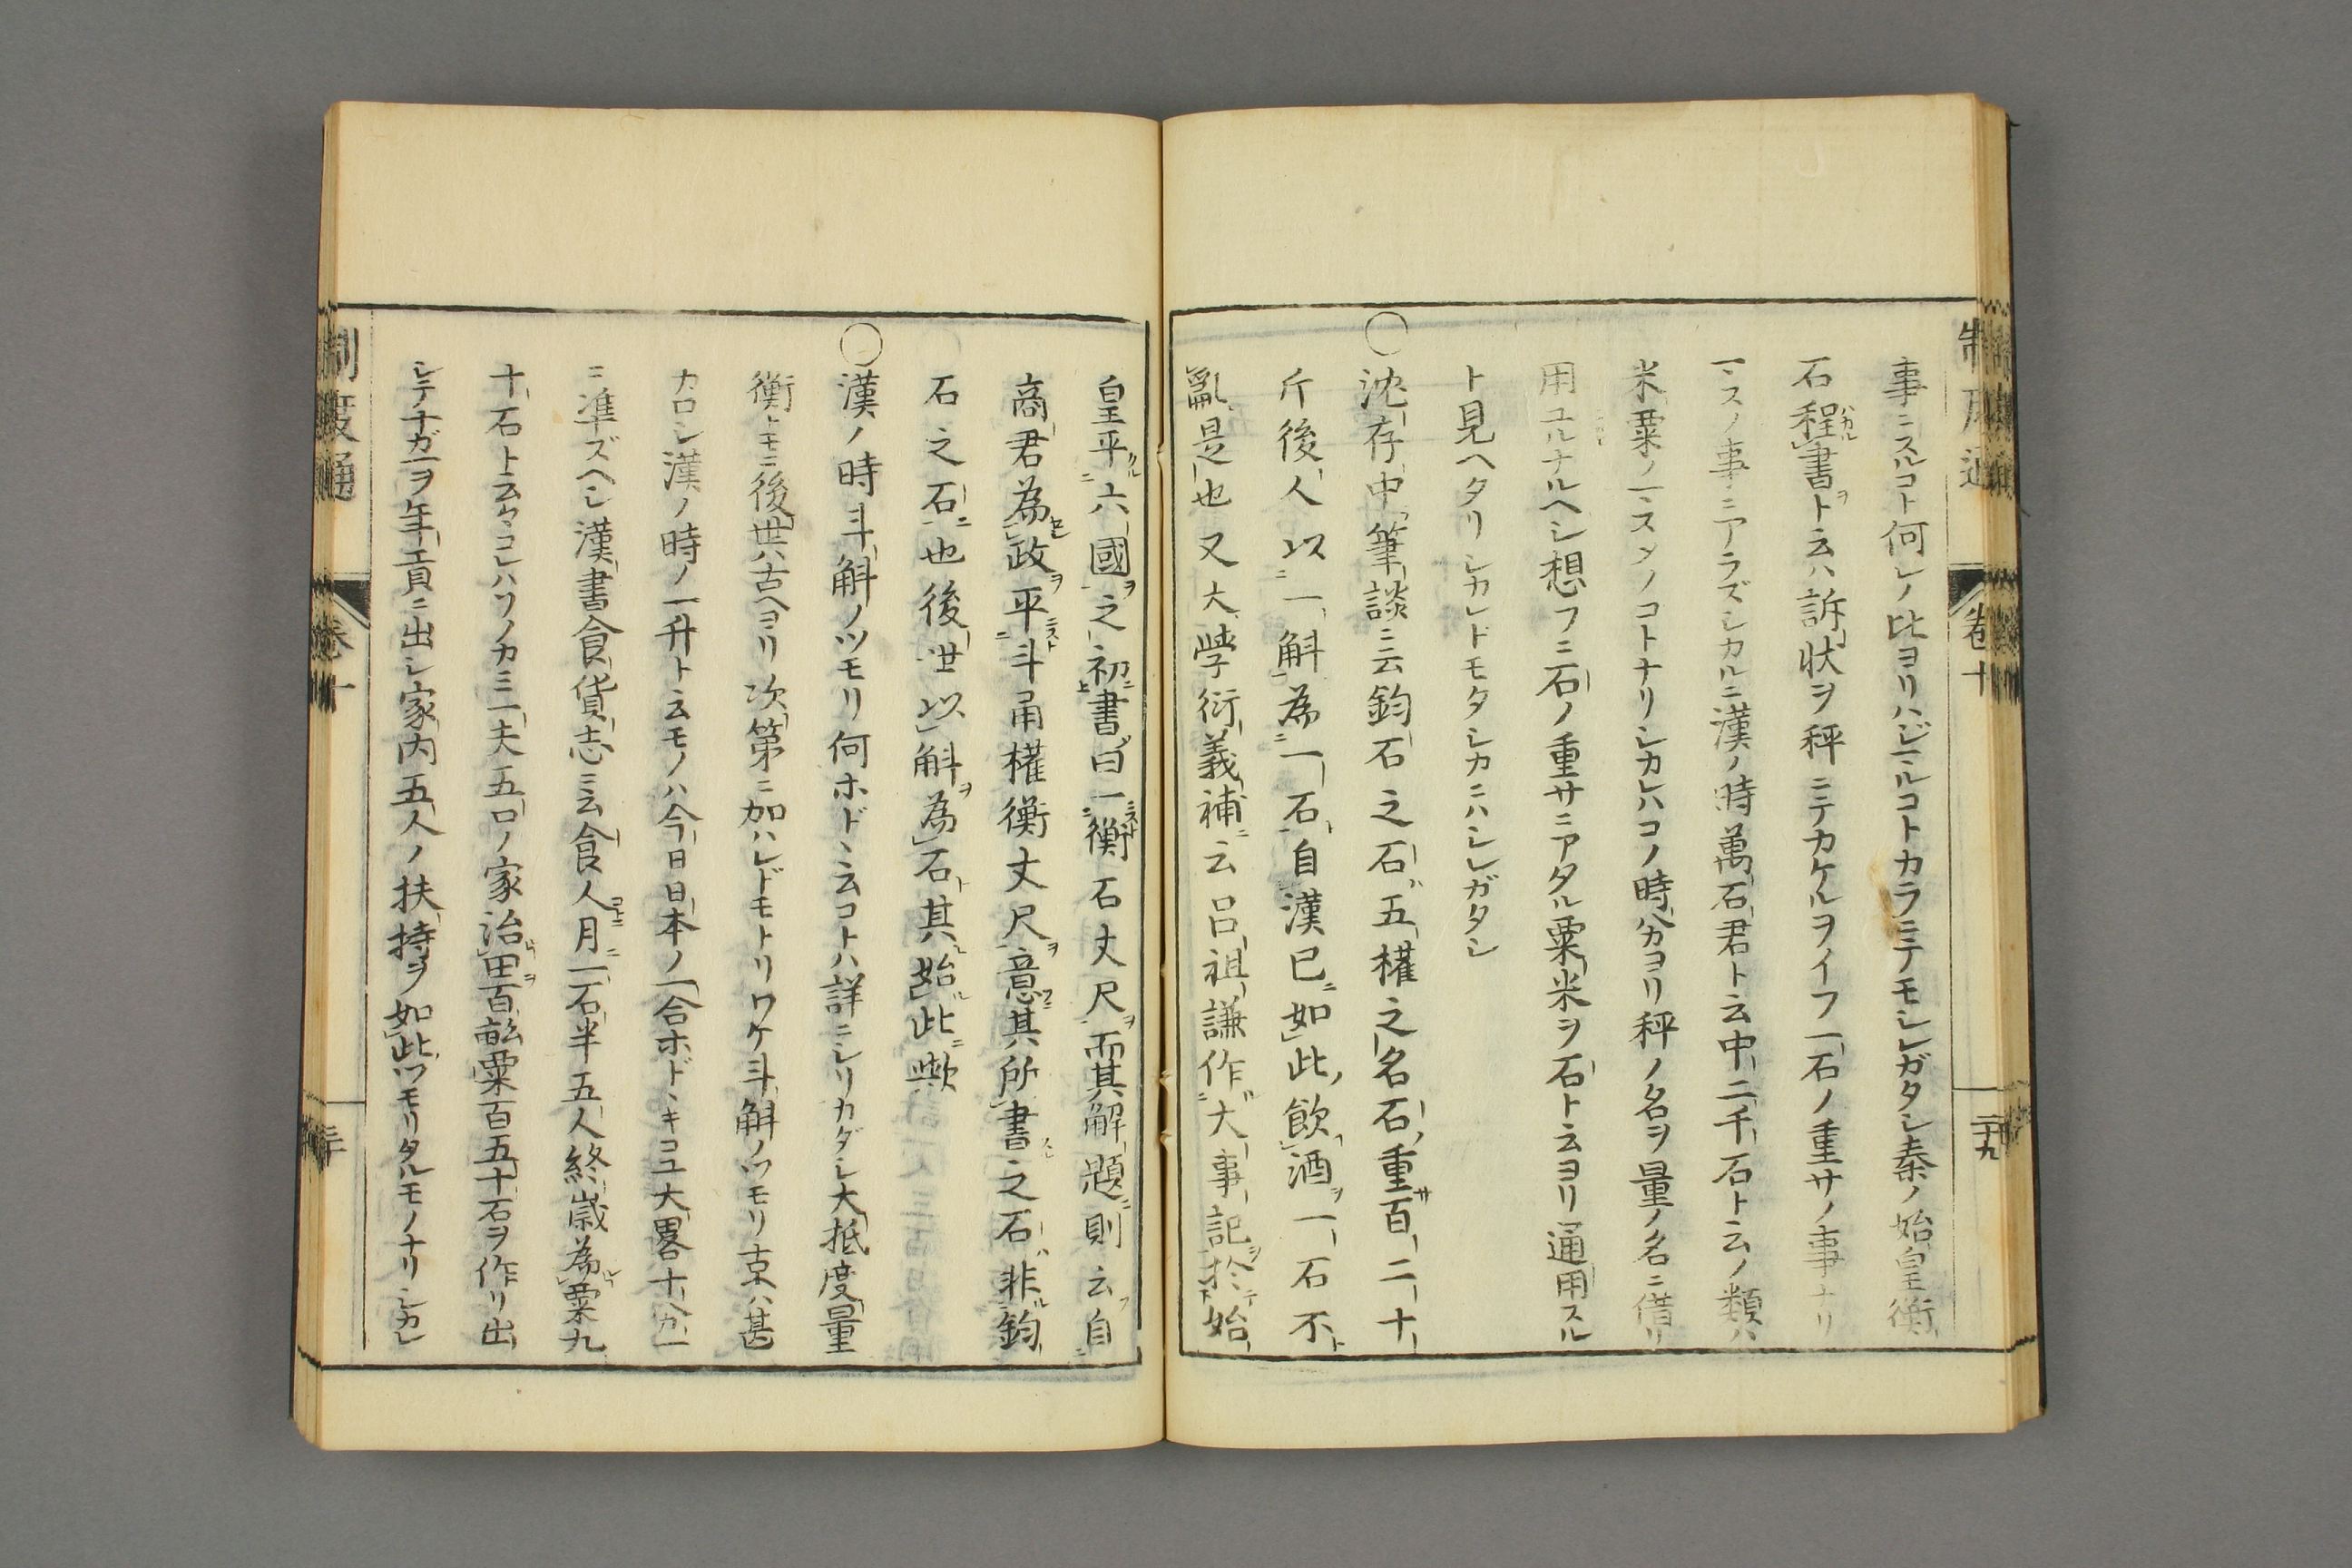 事ニスルコト何レノ比ヨリハジマルコトカラニテモシレガタシ秦ノ始皇衡
石程書ヲトハカルト云ハ訴狀ヲ秤ニテカケルヲイフ一石ノ重サノ事ナリ
一マスノ事ニアラズシカルニ漢ノ時萬石君ト云中二千石ト云ノ類ハ
米粟ノ一マスメノコトナリシカレハコノ時分ヨリ秤ノ名ヲ量ノ名ニ借リ
用ユルナルヘシ想フニ石ノ重サニアタル粟米ヲ石ト云ヨリ通用スル
ト見ヘタリシカレドモタシカニハシレガタシ
○沈存中筆談ニ云鈞石之石五權之名石重百二十
斤後人以一斛為一石自漢已如此飲酒一石不
亂是也又大學衍義補ニ云呂祖謙作大事記於始
皇平六國之初書曰一衡石丈尺而其解題則云自
商君為政平斗甬權衡丈尺意其所書之石非鈞
石之石也後世以斛為石其始此歟
○漢ノ時斗斛ノツモリ何ホドト云コトハ詳ニシリカダシ大抵度量
衡トモニ後世ハ古ヘヨリ次第ニ加ハレドモトリワケ斗斛ノツモリ古ハ甚
カロシ漢ノ時ノ一升ト云モノハ今日日本ノ一合ホドヽキコユ大畧十分一
ニ準ズヘシ漢書食貨志ニ云食人月一石半五人終歲為粟九
十石ト云々コレハソノカミ一夫五口ノ家治田百畝粟百五十石ヲ作リ出
シテ十ガ一ヲ年貢ニ出シ家内五人ノ扶持ヲ如此ツモリタルモノナリシカレ
制度通
卷十
二十九
制度通
卷十
三十